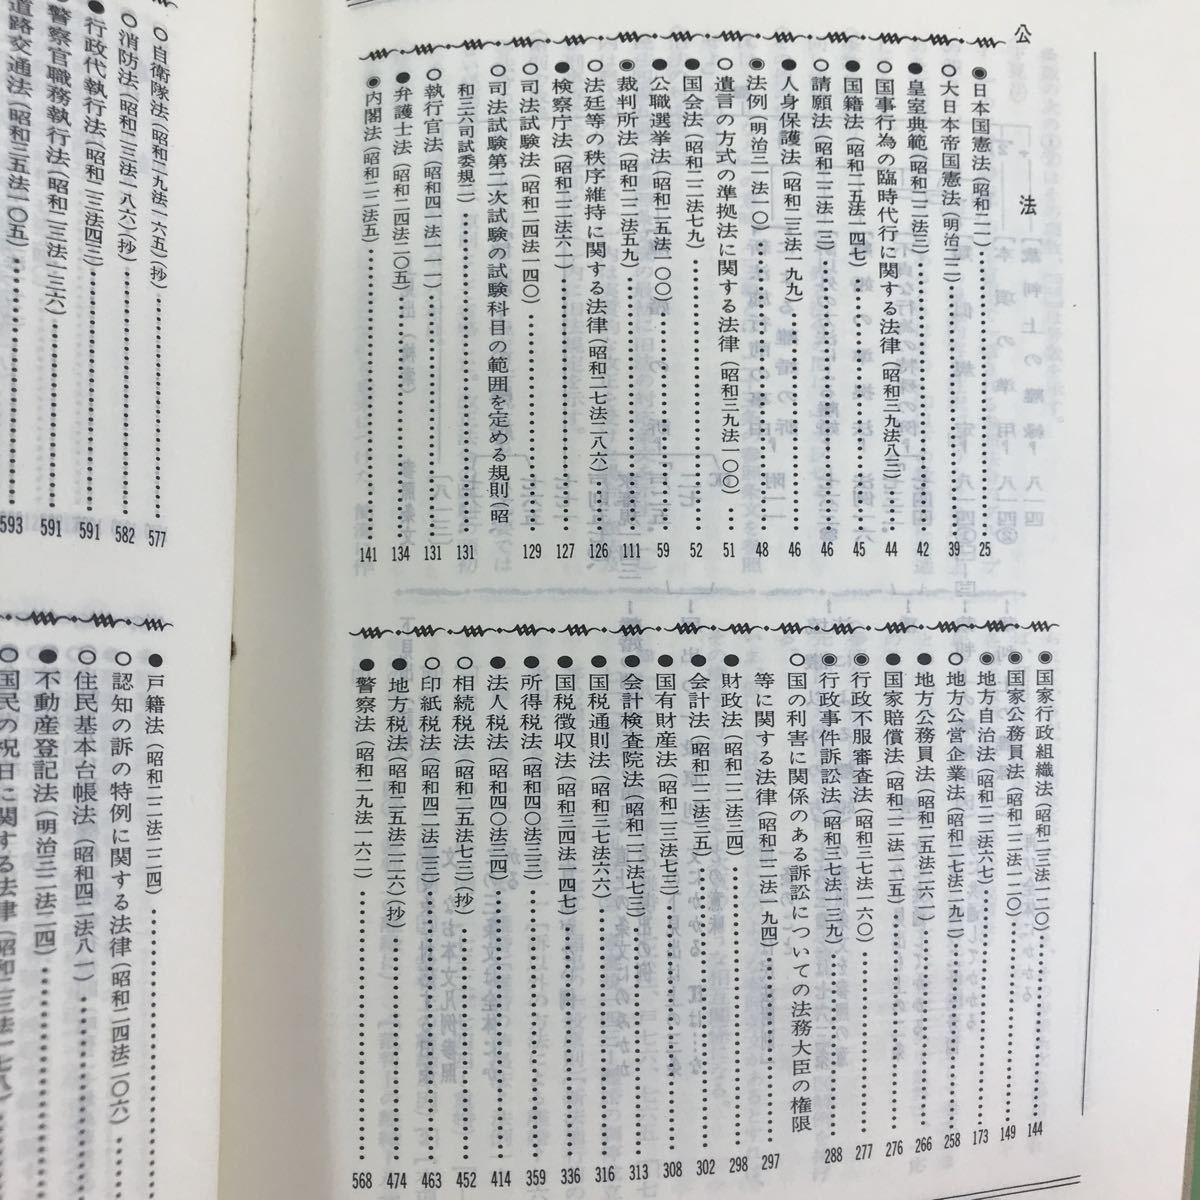 公法
◉日本国憲法(昭和二一)……25
○大日本帝国憲法(明治二二)……39
●皇室典範(昭和二二法三)……42
○国事行為の臨時代行に関する法律(昭和三九法八三)……44
●国籍法(昭和二五法一四七)……45
○請願法(昭和二二法一三)……46
●人身保護法(昭和二三法一九九)……46
◉法例(明治三一法一〇)……48
○遺言の方式の準拠法に関する法律(昭和三九法一〇〇)……51
●国会法(昭和二二法七九)……52
●公職選挙法(昭和二五法一〇〇)……59
◉裁判所法(昭和二二法五九)……111
○法廷等の秩序維持に関する法律(昭和二七法二八六)……126
●検察庁法(昭和二二法六一)……127
○司法試験法(昭和二四法一四〇)……129
○司法試験第二次試験の試験科目の範囲を定める規則(昭
和三六司試委規二)……131
○執行官法(昭和四一法一一一)……131
●弁護士法(昭和二四法二〇五)……134
◉内閣法(昭和二二法五)……141
◉国家行政組織法(昭和二三法一二〇)……144
◉国家公務員法(昭和二二法一二〇)……149
◉地方自治法(昭和二二法六七)……173
○地方公営企業法(昭和二七法二九二)……258
●地方公務員法(昭和二五法二六一)……266
●国家賠償法(昭和二二法一二五)……276
◉行政不服審査法(昭和三七法一六〇)……277
◉行政事件訴訟法(昭和三七法一三九)……288
○国の利害に関係のある訴訟についての法務大臣の権限
等に関する法律(昭和二二法一九四)……297
●財政法(昭和二二法三四)……298
●会計法(昭和二二法三五)……302
●国有財産法(昭和二三法七三)……308
●会計検査院法(昭和二二法七三)……313
●国税通則法(昭和三七法六六)……316
●国税徴収法(昭和三四法一四七)……336
●所得税法(昭和四〇法三三)……359
●法人税法(昭和四〇法三四)……414
○相続税法(昭和二五法七三)(抄)……452
○印紙税法(昭和四二法二三)……463
●地方税法(昭和二五法二二六)(抄)……474
●警察法(昭和二九法一六二)……568
○自衛隊法(昭和二九法一六五)(抄)……577
○消防法(昭和二三法一八六)(抄)……582
●行政代執行法(昭和二三法四三)……591
●警察官職務執行法(昭和二三法一三六)……591
道路交通法(昭和三五法一〇五)……593
●戸籍法(昭和二二法二二四)……
○認知の訴の特例に関する法律(昭和二四法二〇六)……
○住民基本台帳法(昭和四二法八一)……
●不動産登記法(明治三二法二四)……
○国民の祝日に関する法律(昭和二三法一七八)